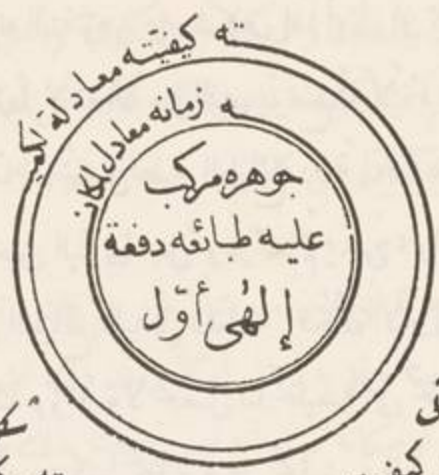 ته كيفيته معادلة لكميته
ه زمانه معادل لمكانه
جوهره مركب
عليه طبائعه دفعة
إلهٰي أوّل